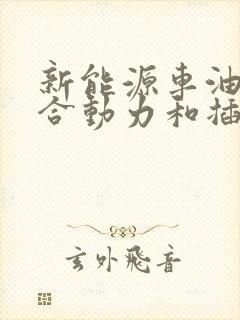 新能源车油
合动力和插
玄外飛音